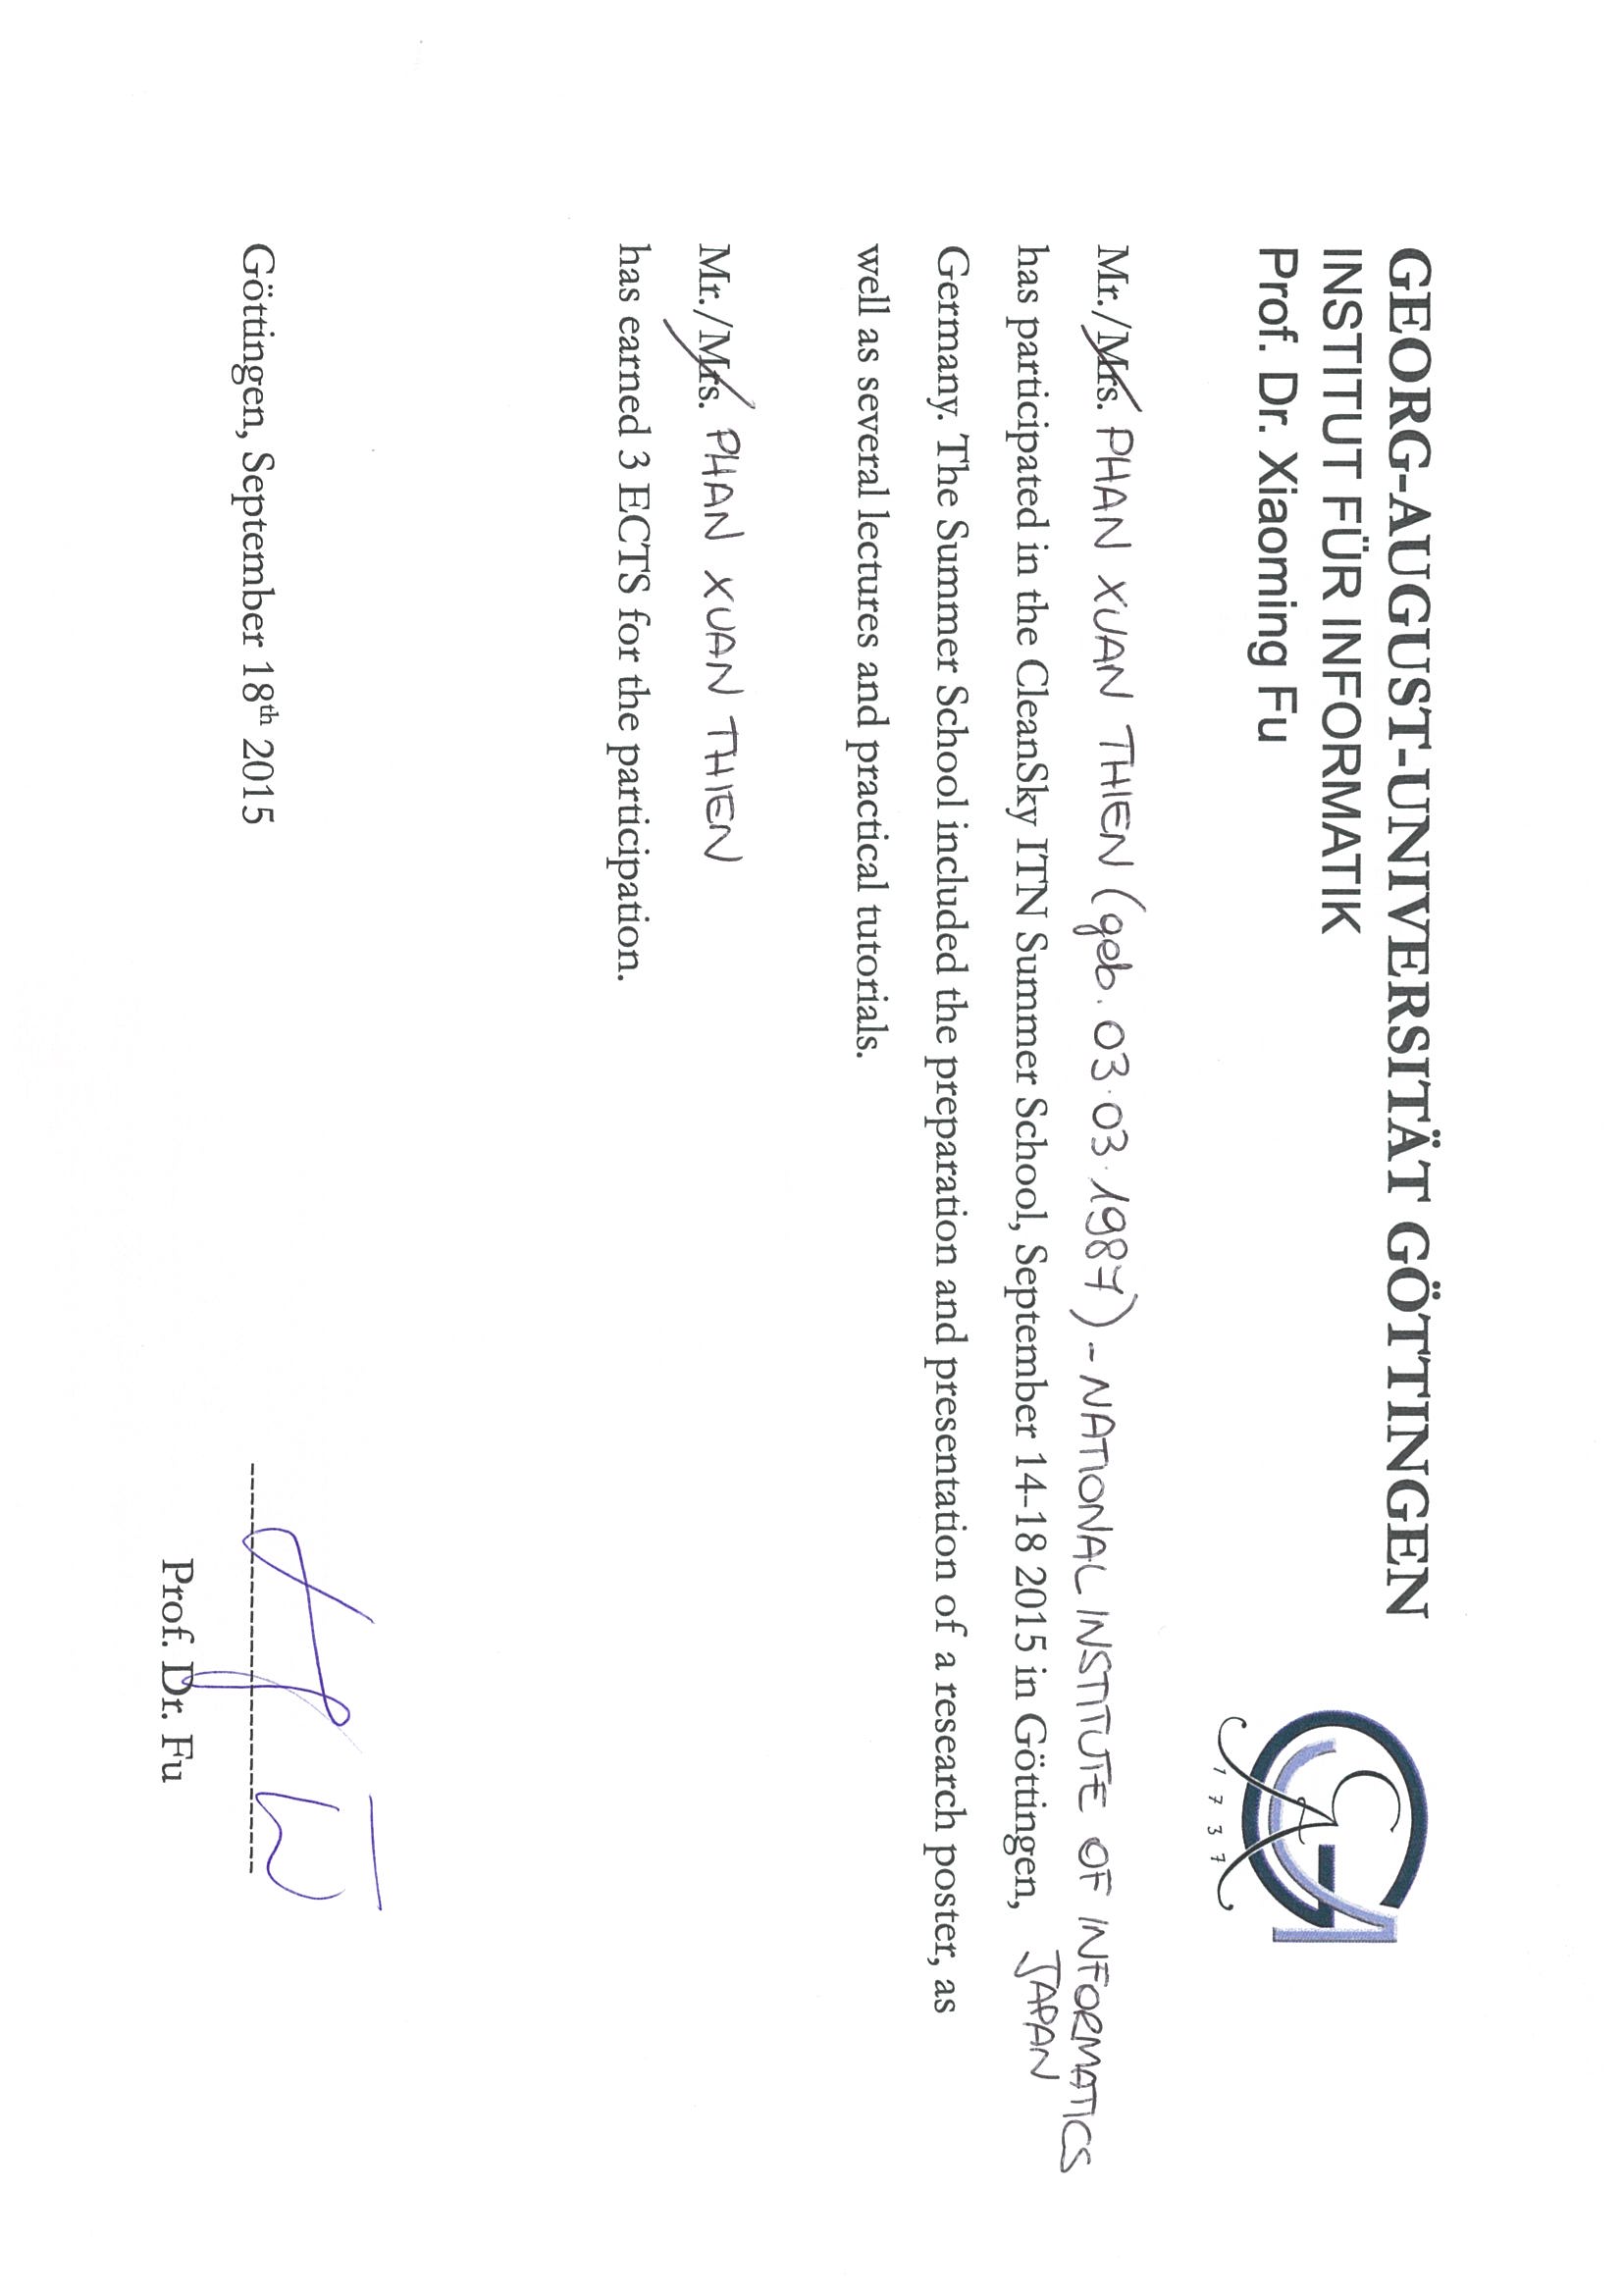 GEORG-AUGUST-UNIVERSITÄT GÖTTINGEN
INSTITUT FÜR INFORMATIK
Prof. Dr. Xiaoming Fu
1737
Mr./Mrs. PHAN XUAN THIEN (geb. 03.03.1987) - NATIONAL INSTITUTE OF INFORMATICS
JAPAN
has participated in the CleanSky ITN Summer School, September 14-18 2015 in Göttingen,
Germany. The Summer School included the preparation and presentation of a research poster, as
well as several lectures and practical tutorials.
Mr./Mrs. PHAN XUAN THIEN
has earned 3 ECTS for the participation.
Göttingen, September 18th 2015
Prof. Dr. Fu